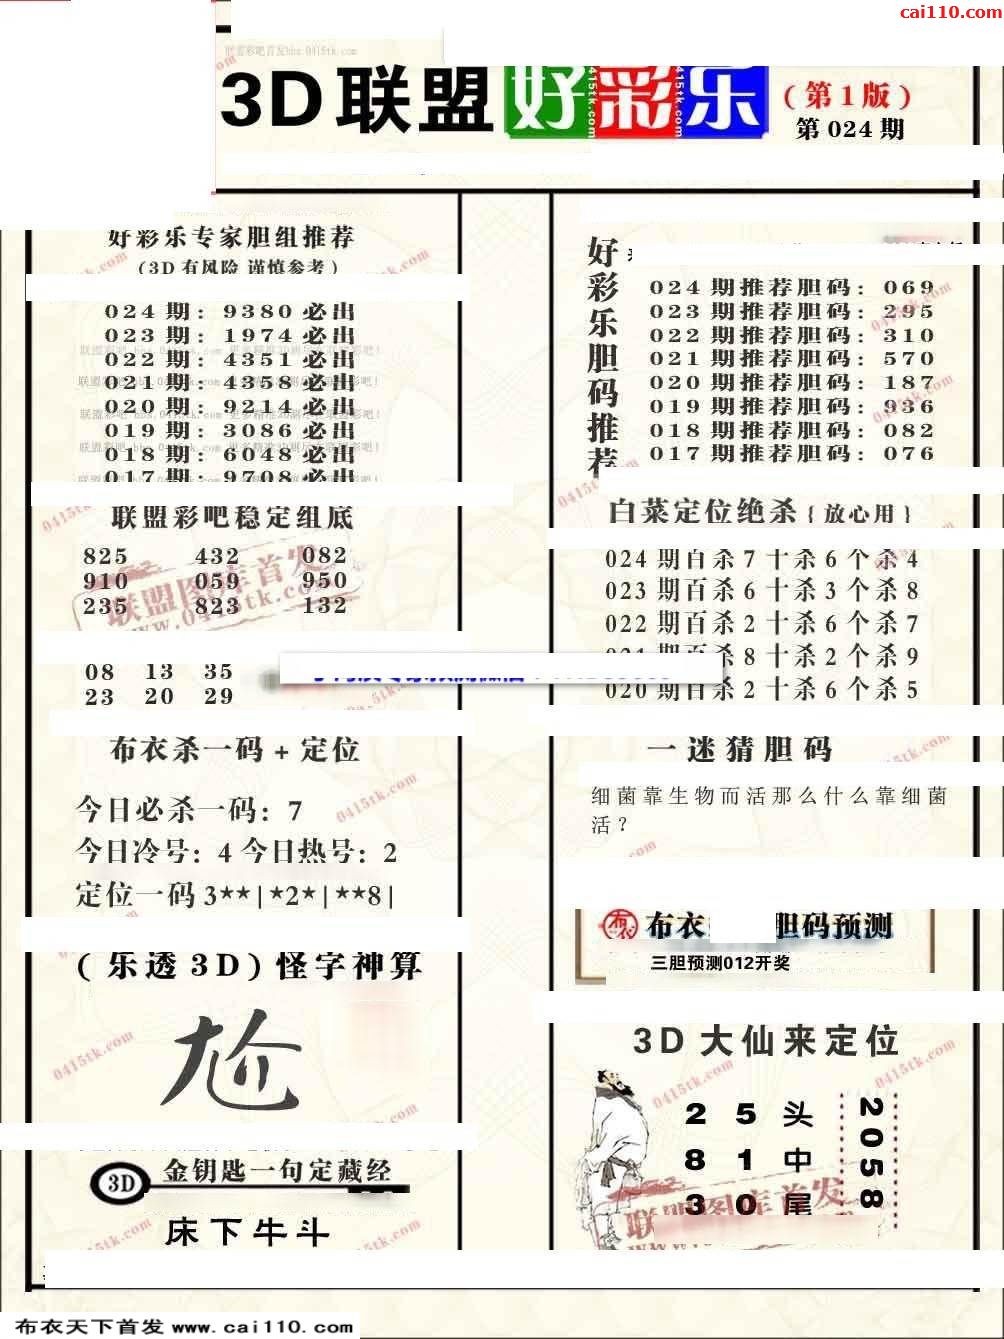 cai110.com
联盟彩吧首发bbs.0415tk.com
3D联盟好彩乐
(第1版)
第024期
好彩乐专家胆组推荐
(3D有风险 谨慎参考)
024期:9380必出
023期:1974必出
022期:4351必出
021期:4358必出
020期:9214必出
019期:3086必出
018期:6048必出
017期:9708必出
联盟彩吧稳定组底
825 432 082
910 059 950
235 823 132
08 13 35
23 20 29
布衣杀一码+定位
今日必杀一码:7
今日冷号:4今日热号:2
定位一码3**|*2*|**8|
(乐透3D)怪字神算
尬
3D
金钥匙一句定藏经
床下牛斗
好彩乐胆码推荐
024期推荐胆码:069
023期推荐胆码:295
022期推荐胆码:310
021期推荐胆码:570
020期推荐胆码:187
019期推荐胆码:936
018期推荐胆码:082
017期推荐胆码:076
白菜定位绝杀{放心用}
024期百杀7十杀6个杀4
023期百杀6十杀3个杀8
022期百杀2十杀6个杀7
021期百杀8十杀2个杀9
020期百杀2十杀6个杀5
一迷猜胆码
细菌靠生物而活那么什么靠细菌
活?
布衣 胆码预测
三胆预测012开奖
3D大仙来定位
2 5头
8 1中
3 0尾
2058
联盟图库首发
www.0415tk.com
0415tk.com
布衣天下首发www.cai110.com